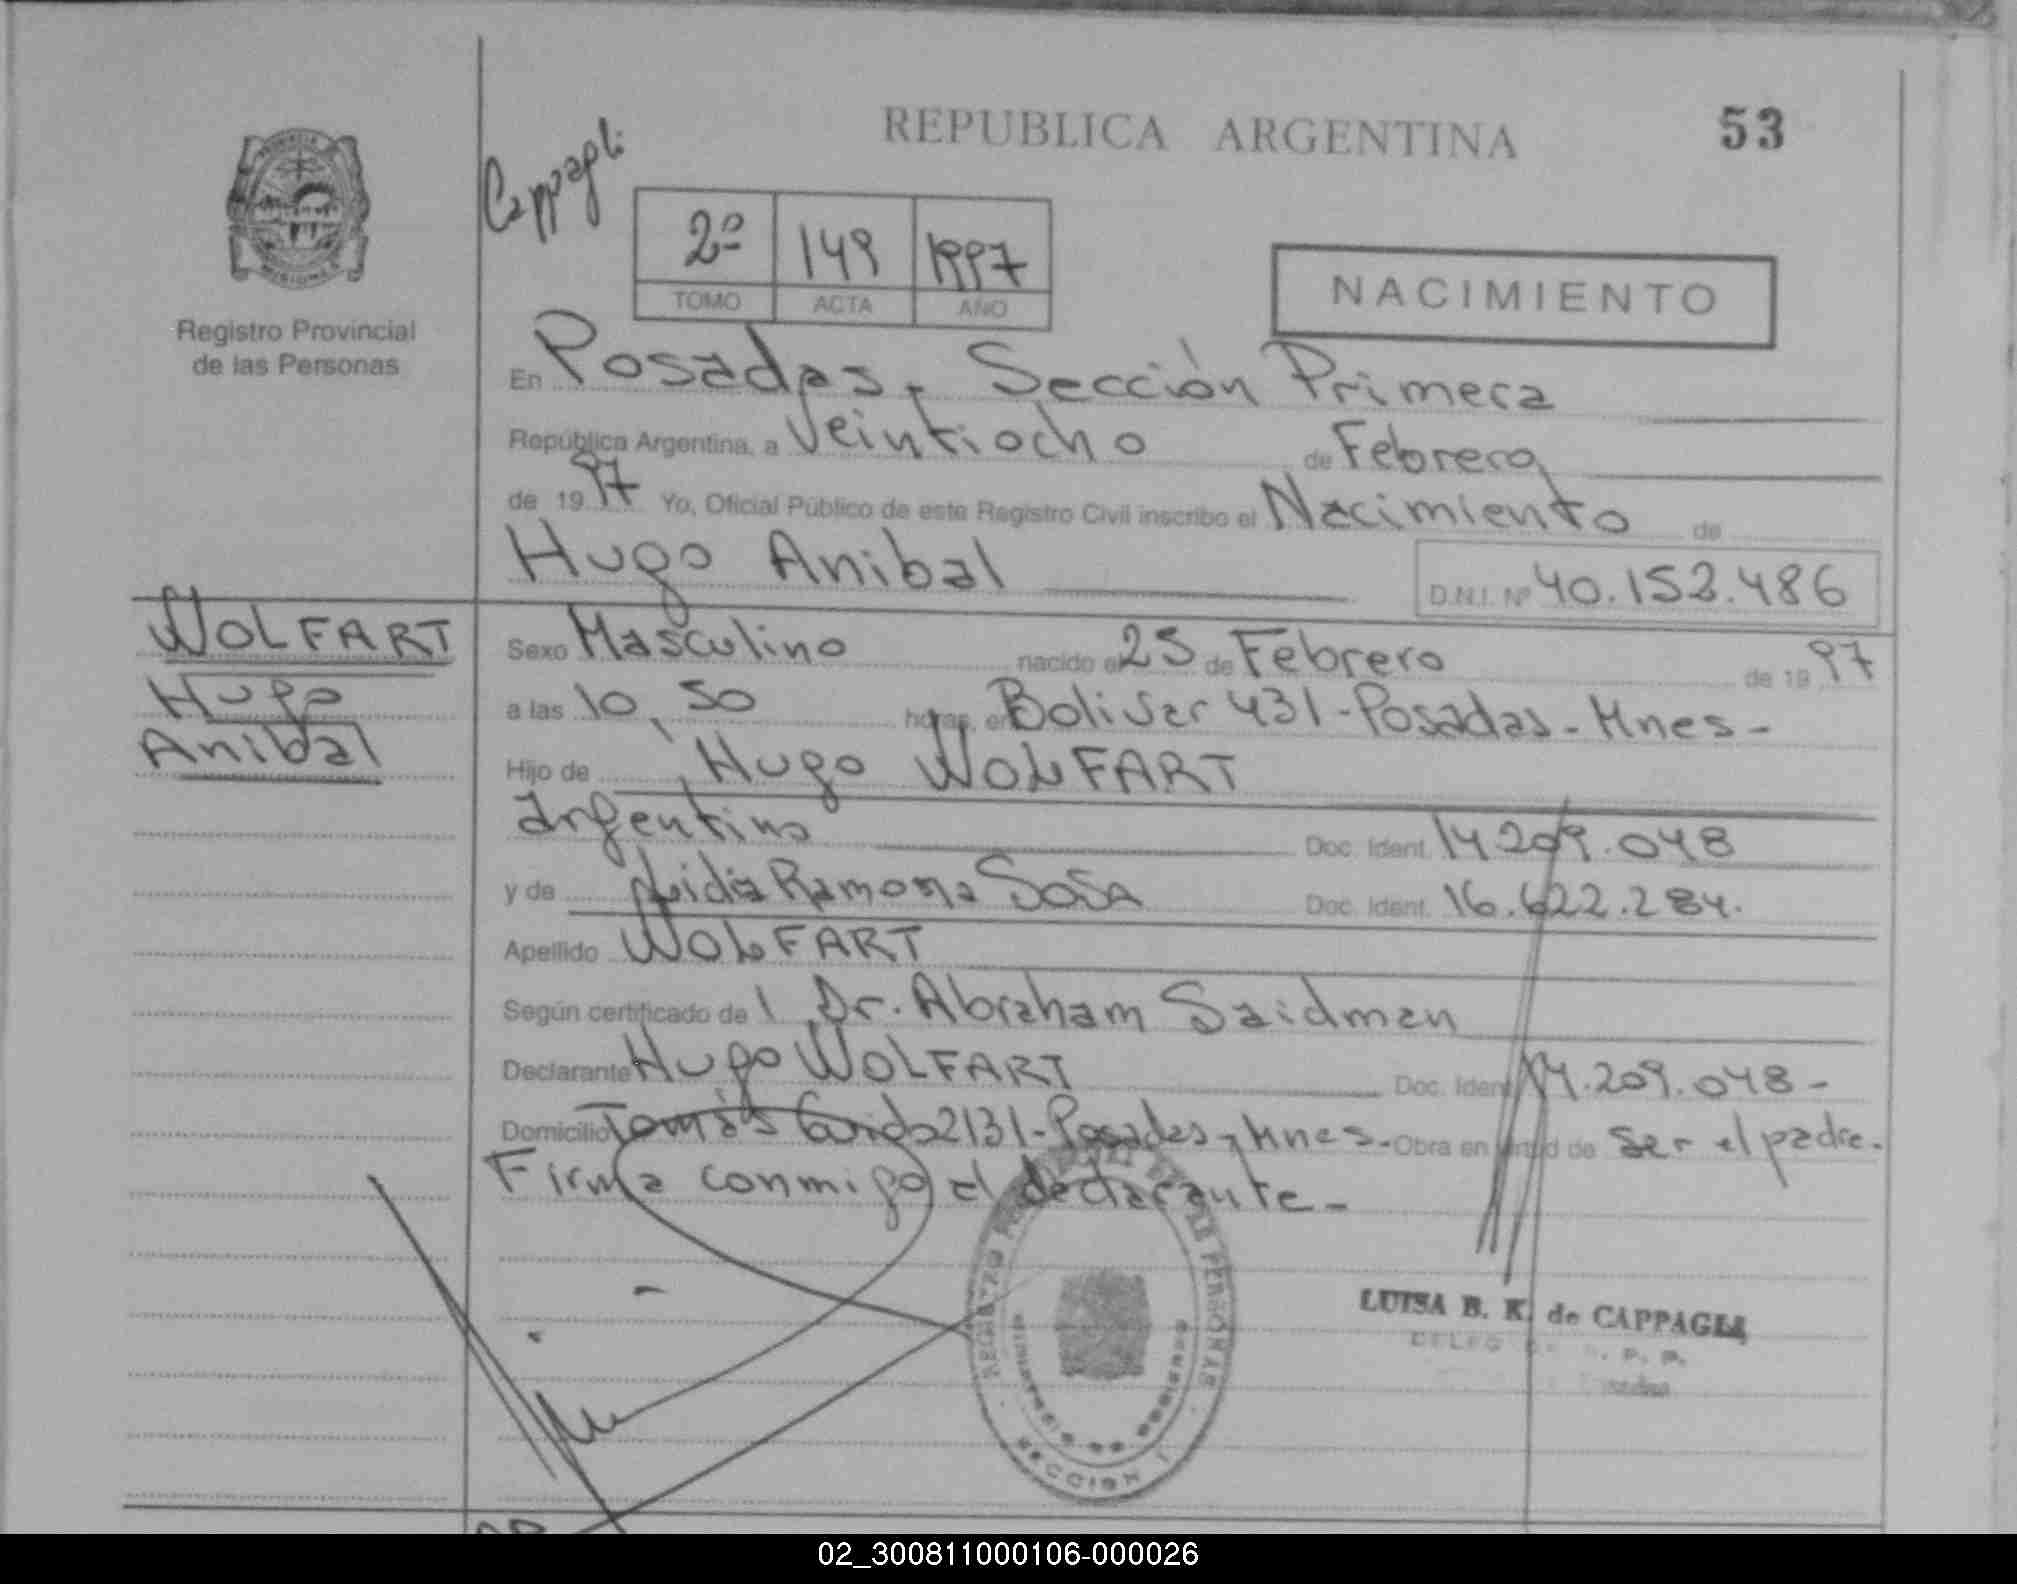 REPUBLICA ARGENTINA
53
Cappagli
2º 149 1997
TOMO ACTA AÑO
NACIMIENTO
Registro Provincial
de las Personas
En Posadas, Sección Primera
República Argentina, a Veintiocho de Febrero
de 1997 Yo, Oficial Público de este Registro Civil inscribo el Nacimiento de
Hugo Anibal
D.N.I. Nº 40.152.486
WOLFART
Hugo
Anibal
Sexo Masculino nacido el 25 de Febrero de 1997
a las 10,50 horas, en Bolivar 431-Posadas-Mnes-
Hijo de Hugo WOLFART
Argentino Doc. Ident. 14.209.048
y de Lidia Ramona SOSA Doc. Ident. 16.622.284.
Apellido WOLFART
Según certificado de l Dr. Abraham Saidman
Declarante Hugo WOLFART Doc. Ident. 14.209.048-
Domicilio Tomás Guido 2131-Posadas-Mnes. Obra en virtud de ser el padre.
Firma conmigo el declarante-
LUISA B. K. de CAPPAGLI
SECCION 1
02_300811000106-000026